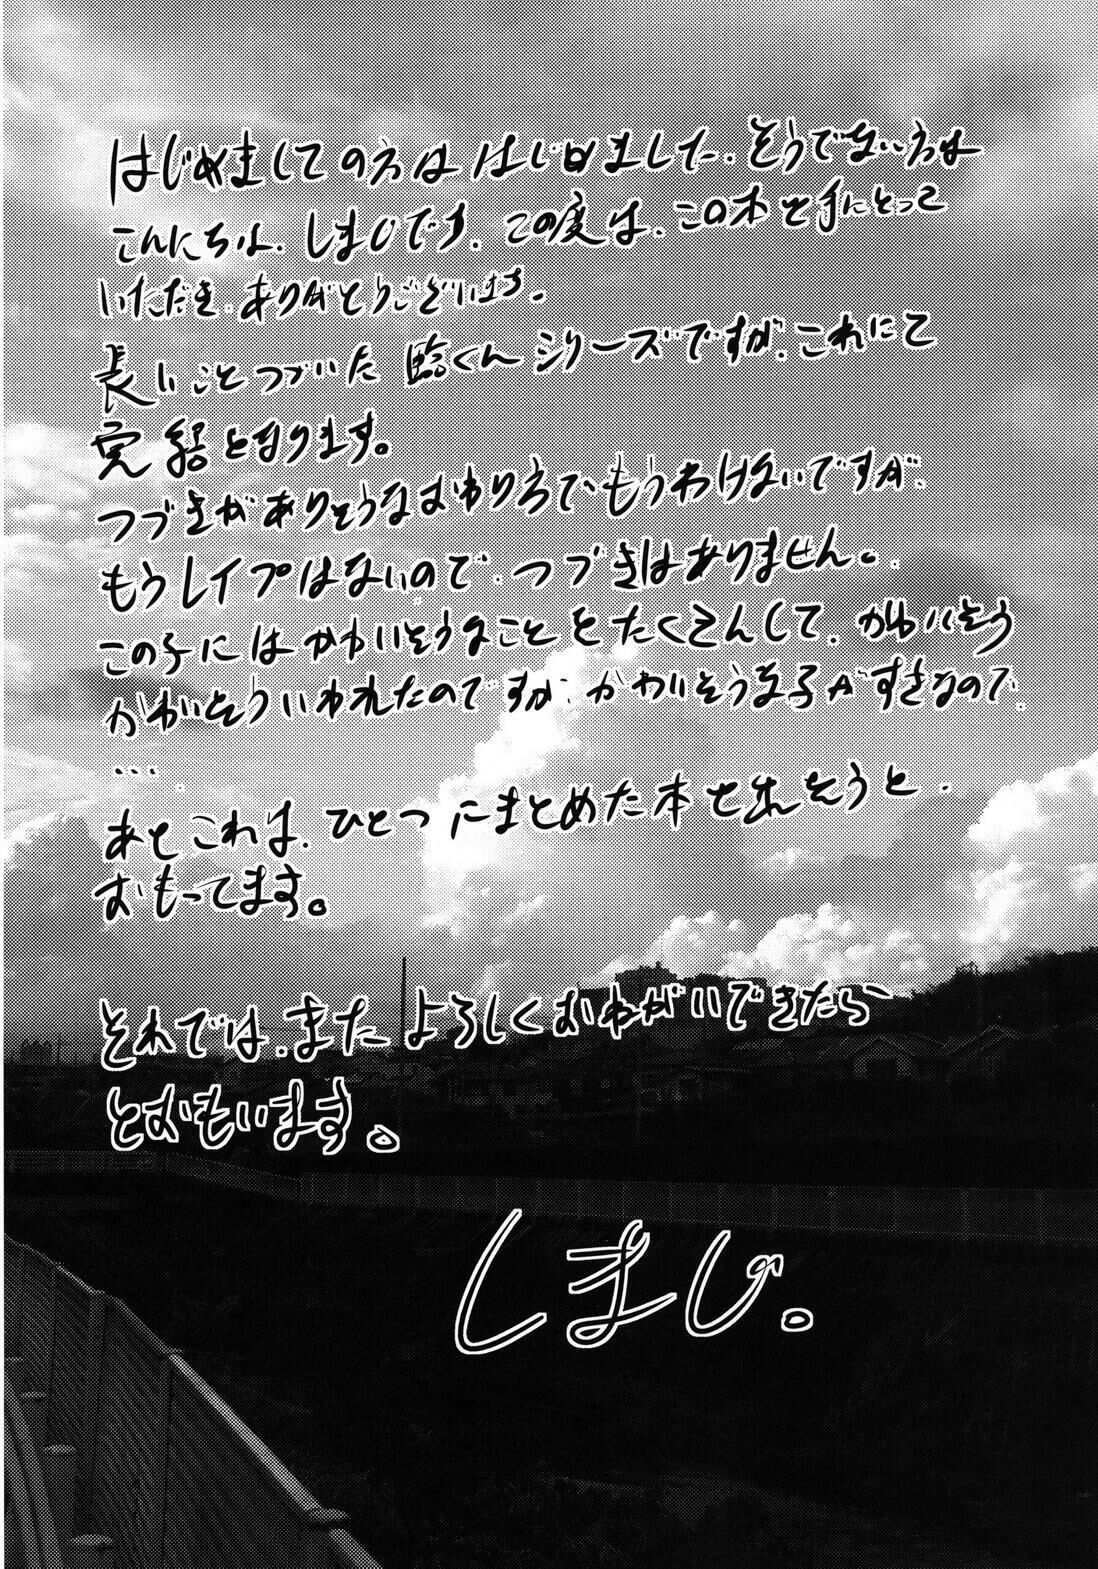 はじめましての方は はじめまして、そうでない方は
こんにちは、しまじです。この度は、この本を手にとって
いただき、ありがとうございます。
長いことつづいた 臨くん シリーズですが、これにて
完結となります。
つづきがありそうなおわり方でもうわけないですが、
もうレイプはないので、つづきはありません。
この子にはかわいそうなことをたくさんして、かわいそう
かわいそういわれたのですが、かわいそうな子がすきなので
…
あと これは、ひとつにまとめた本を出そうと、
おもってます。
それでは、また よろしくおねがいできたら
とおもいます。
しまじ。